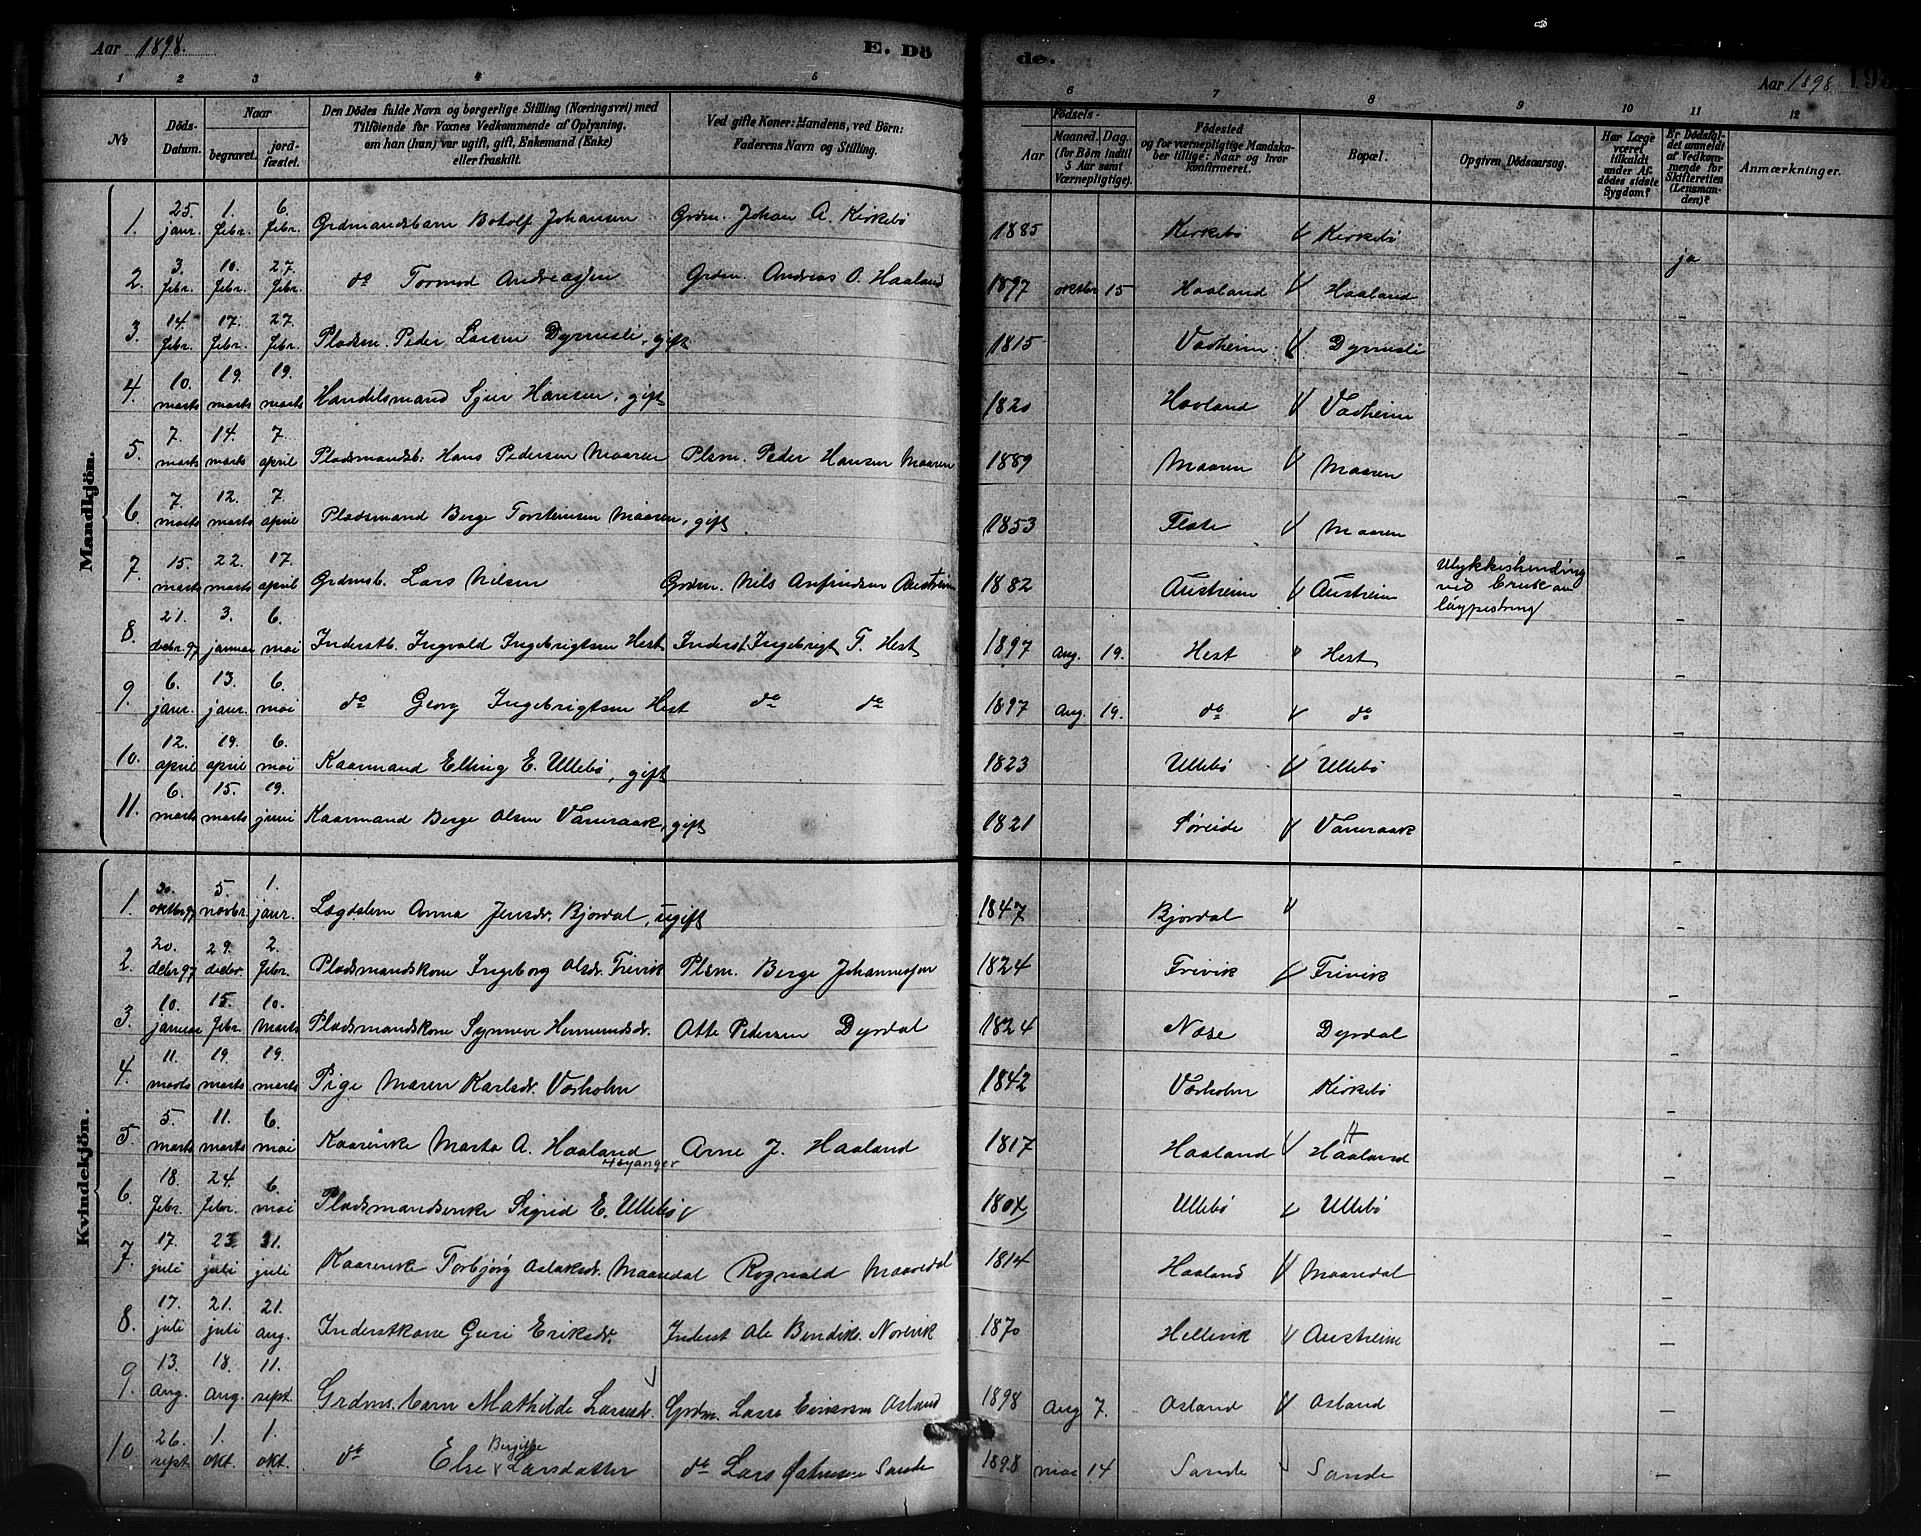 Aar 1898. E. Dö de. Aar 1898 195
1 2 3 4 5 6 7 8 9 10 11 12
No. Döds-Datum. Naar begravet. jordfæstet. Den Dödes fulde Navn og borgerlige Stilling (Næringsvei) med Tilföiende for Voxnes Vedkommende af Oplysning, om han (hun) var ugift, gift, Enkemand (Enke) eller fraskilt. Ved gifte Koner: Mandens, ved Börn: Faderens Navn og Stilling. Födsels- Aar Maaned. Dag. (for Börn indtil 5 Aar samt Værnepligtige). Födested og for værnepligtige Mandskaber tillige: Naar og hvor konfirmeret. Bopæl. Opgiven Dödsaarsag. Har Læge været tilkaldt under Afdödes sidste Sygdom? Er Dödsfaldet anmeldt af Vedkommende for Skifteretten (Lensmanden)? Anmærkninger.
Mandkjön.
1. 25. janr. 1. febr. 6. febr. Grdmandsbarn Botolf Johansen Grdm. Johan A. Kirkebö 1885 Kirkebö Kirkebö ja
2. 3. febr. 10. febr. 27. febr. do Tormod Andreassen Grdm. Andreas O. Haaland 1897 oktbr 15 Haaland Haaland -
3. 14. febr. 17. febr. 27. febr. Pladsm. Peder Larsen Dyrnesli, gift 1815 Vadheim Dyrnesli -
4. 10. marts 19. marts 19. marts Handelsmand Sjur Hansen, gift 1820 Haaland Vadheim -
5. 7. marts 14. marts 7. april Pladsmandsb. Hans Pedersen Maaren Plsm. Peder Hansen Maaren 1889 Maaren Maaren -
6. 7. marts 12. marts 7. april Pladsmand Berge Torsteinsen Maaren, gift 1853 Flate Maaren -
7. 15. marts 22. marts 17. april Grdmsb. Lars Nilsen Grdm. Nils Anfindsen Austreim 1882 Austreim Austreim Ulykkeshending ved bruk av löypestreng -
8. 21. debr. 97 3. januar 6. mai Inderstb. Ingvald Ingebrigtsen Hest Inderst Ingebrigt T. Hest 1897 Aug. 19. Hest Hest -
9. 6. janr. 13. janr. 6. mai do Georg Ingebrigtsen Hest do do 1897 Aug. 19. do do -
10. 12. april 19. april 6. mai Kaarmand Elling E. Ullebö, gift 1823 Ullebö Ullebö -
11. 6. marts 15. marts 19. juni Kaarmand Berge Olsen Vaneraak, gift 1821 Söreide Vaneraak -
Kvindekjön.
1. 30. oktbr 97 5 novbr. 1. janr. Lægdslem Anna Jensdr. Bjordal, ugift 1847 Bjordal
2. 20. debr 97 29. debr. 2. febr. Pladsmandskone Ingeborg Olsdr. Trivik Plsm. Berge Johannessen 1824 Trivik Trivik -
3. 10. januar 15. febr. 10. Marts Pladsmandskone Synneve Hermundsdr. Otte Pedersen Dyrdal 1824 Nese Dyrdal -
4. 11. marts 19. marts 19. marts Pige Maren Karlsdr. Værholm 1842 Værholm Kirkebö -
5. 5. marts 11. marts 6. mai Kaarenke Marta A. Haaland Höyanger Arne J. Haaland 1817 Haaland Haaland -
6. 18. febr. 24. febr. 6. mai Pladsmandsenke Sigrid E. Ullebö 1804 Ullebö Ullebö -
7. 17. juli 23 juli 31. juli Kaarenke Torbjörg Aslaksdr. Maaredal Rognald Maaredal 1814 Haaland Maaredal -
8. 17. juli 21. juli 21. aug. Inderstkone Guri Eriksdr. Inderst Ole Bendiks. Norevik 1870 Hellevik Austreim -
9. 13. aug. 18. aug. 11. sept. Grdms. barn Mathilde Larsesdr. Grdm. Lasse Einersen Osland 1898 Aug 7. Osland Osland -
10. 26. sept. 1. okt. 1. okt. do Else Bergitte Larsdatter do Lars Sande 1898 mai 14 Sande Sande -